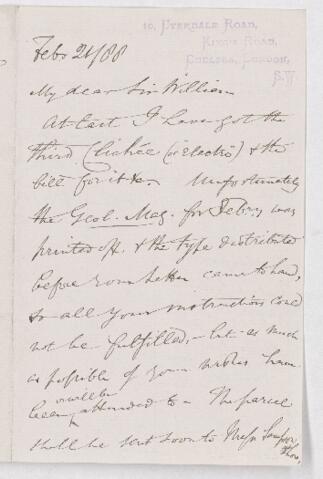 10, UVERDALE ROAD,
KING'S ROAD,
CHELSEA, LONDON,
S.W.
Feby 21/88
My dear Sir William
At last I have got the
third Clichée (or electro) & the
bill for it &c. Unfortunately
the Geol. Mag. for Febry was
printed off & the type distributed
before your letter came to hand,
so all your instructions could
not be fulfilled, – but as much
as possible of your wishes have
or will be
been attended to – The parcel
shall be sent soon to Messrs